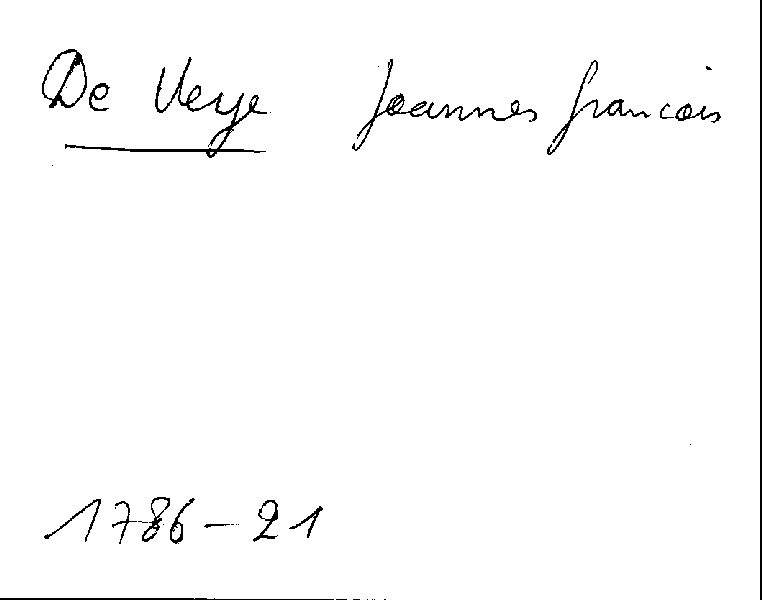 De Veye Joannes francois
1786-21